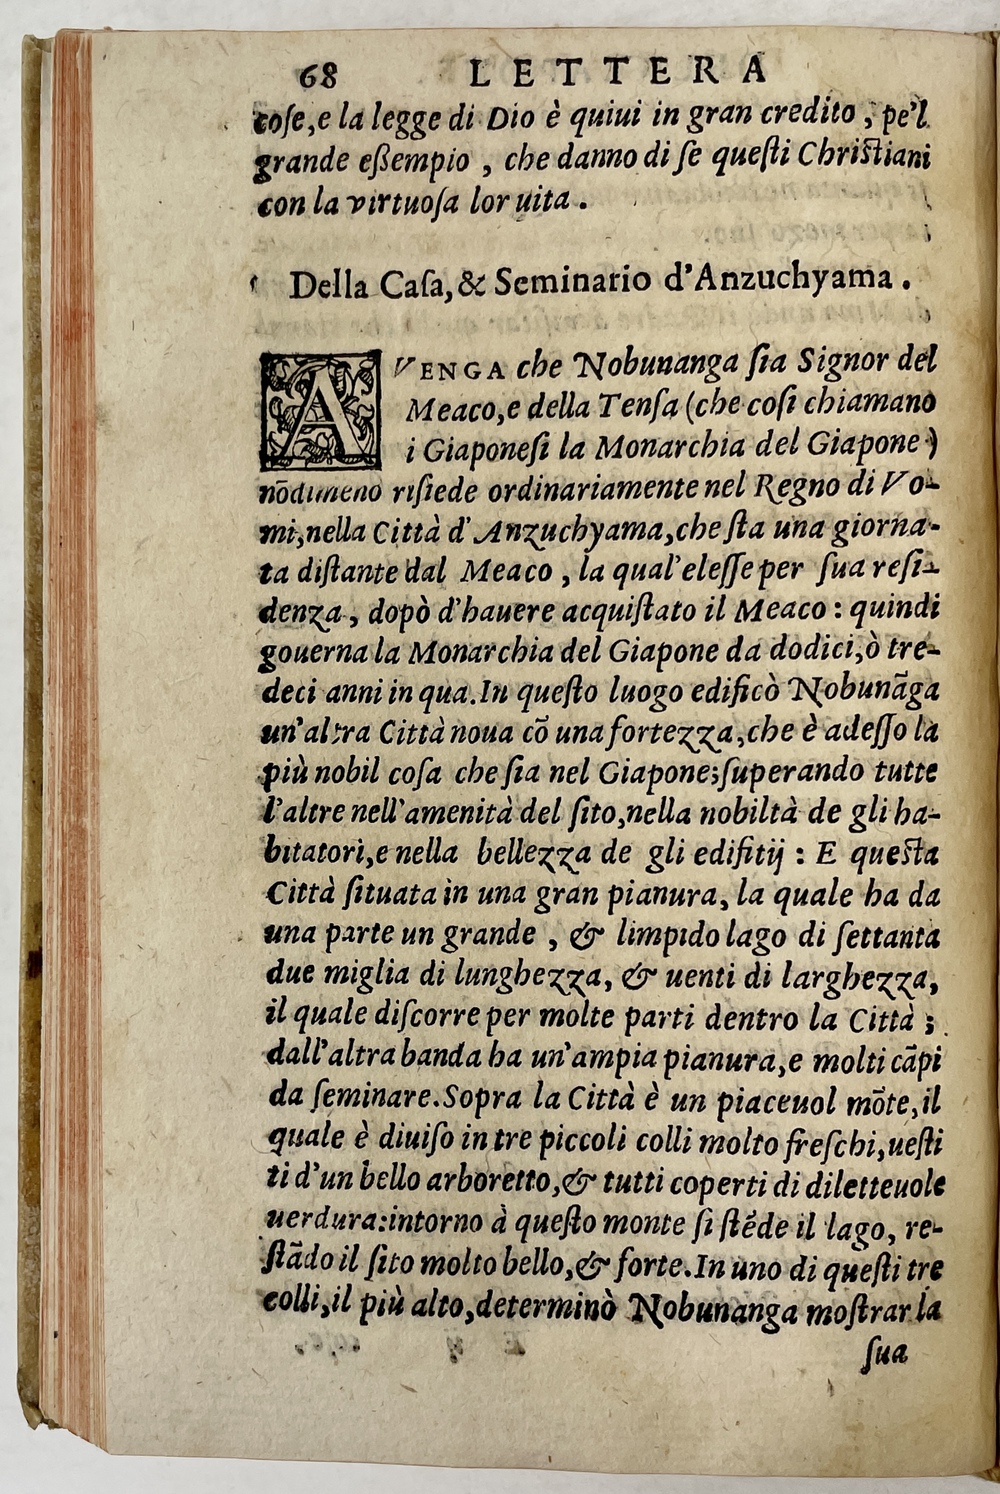 68 LETTERA
coſe, e la legge di Dio è quiui in gran credito, pe'l
grande eßempio, che danno di ſe queſti Chriſtiani
con la virtuoſa lor uita.
Della Caſa, & Seminario d'Anzuchyama.
AVENGA che Nobunanga ſia Signor del
Meaco, e della Tenſa (che coſi chiamano
i Giaponeſi la Monarchia del Giapone)
nōdimeno riſiede ordinariamente nel Regno di Vo-
mi, nella Città d'Anzuchyama, che ſta una giorna-
ta diſtante dal Meaco, la qual'eleſſe per ſua reſi-
denza, dopò d'hauere acquiſtato il Meaco: quindi
gouerna la Monarchia del Giapone da dodici, ò tre-
deci anni in qua. In queſto luogo edificò Nobunãga
un'altra Città noua cõ una fortezza, che è adeſſo la
più nobil coſa che ſia nel Giapone; ſuperando tutte
l'altre nell'amenità del ſito, nella nobiltà de gli ha-
bitatori, e nella bellezza de gli edifitij: E queſta
Città ſituata in una gran pianura, la quale ha da
una parte un grande, & limpido lago di ſettanta
due miglia di lunghezza, & uenti di larghezza,
il quale diſcorre per molte parti dentro la Città;
dall'altra banda ha un'ampia pianura, e molti cãpi
da ſeminare. Sopra la Città è un piaceuol mõte, il
quale è diuiſo in tre piccoli colli molto freſchi, ueſti
ti d'un bello arboretto, & tutti coperti di diletteuole
uerdura: intorno à queſto monte ſi ſtẽde il lago, re-
ſtãdo il ſito molto bello, & forte. In uno di queſti tre
colli, il più alto, determinò Nobunanga moſtrar la
ſua